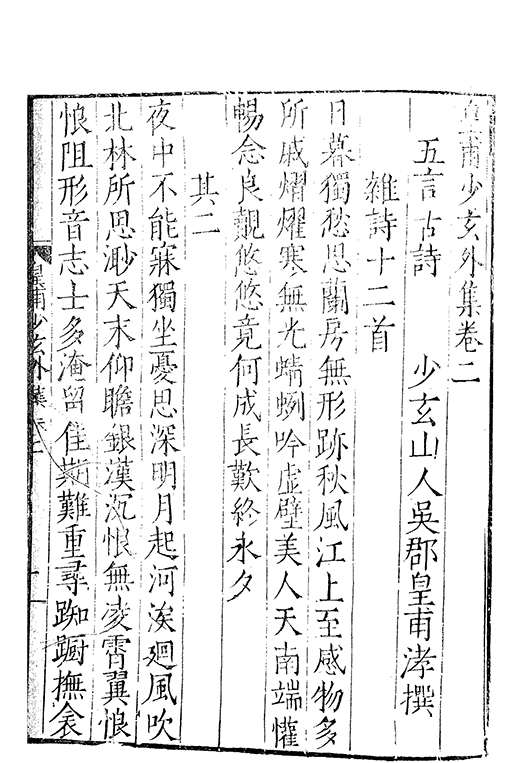 皇甫少玄外集卷二
五言古詩　少玄山人吳郡皇甫涍撰
雜詩十二首
日暮獨愁思蘭房無形跡秋風江上至感物多
所戚熠燿寒無光蜻蛚吟虛壁美人天南端懽
暢念良覿悠悠竟何成長歎終永夕
其二
夜中不能寐獨坐憂思深明月起河涘廻風吹
北林所思渺天末仰瞻銀漢沉恨無凌霄翼悵
恨阻形音志士多淹留佳期難重尋踟躕撫衾
皇甫少玄外集卷二
一